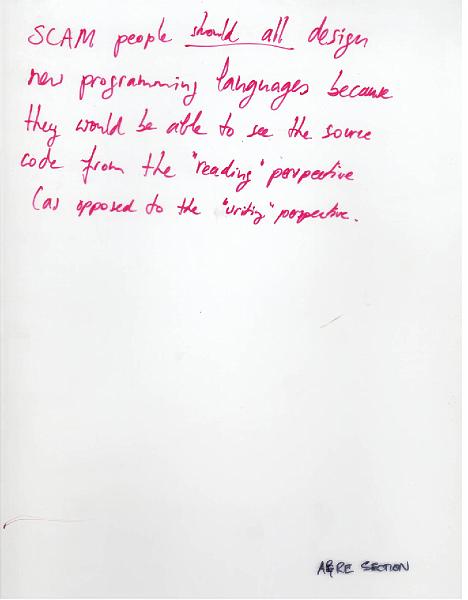 SCAM people should all design
new programming languages because
they would be able to see the source
code from the "reading" perspective
(as opposed to the "writing" perspective.
A&RE SECTION